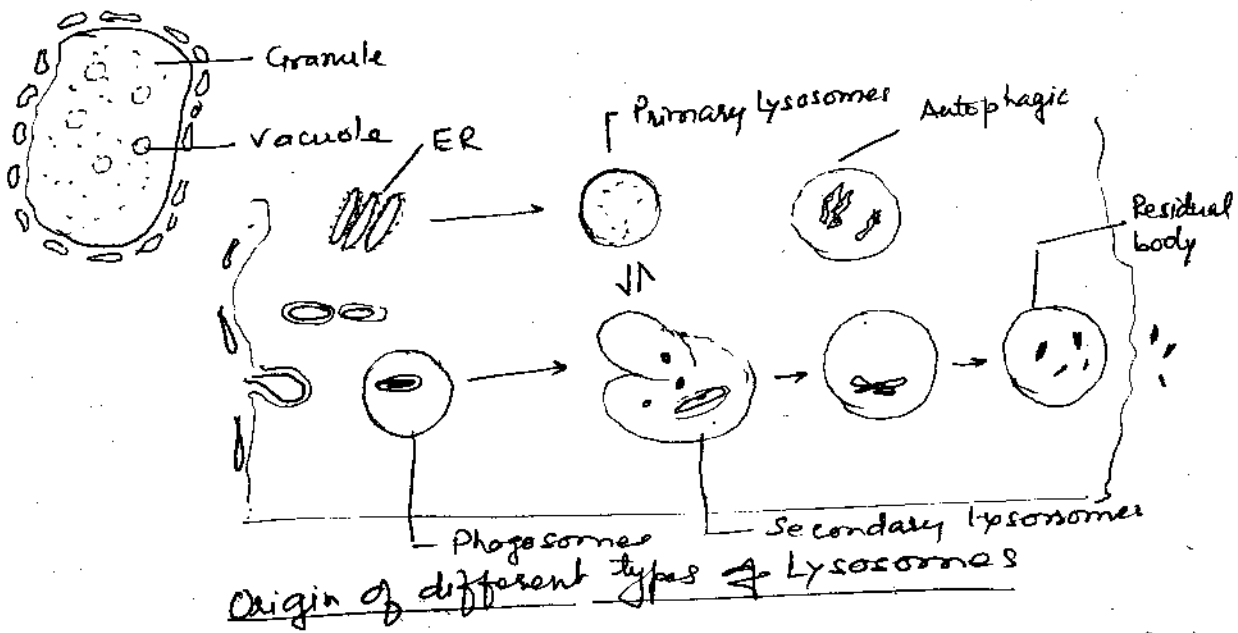 Granule
Vacuole
ER
Primary Lysosomes
Autophagic
Residual
body
Phagosomes
Secondary Lysosomes
Origin of different types of Lysosomes